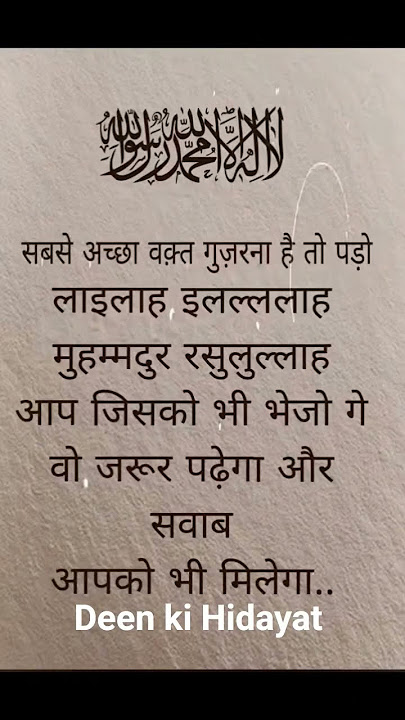 لا إله إلا الله محمد رسول الله
सबसे अच्छा वक़्त गुज़रना है तो पड़ो
लाइलाह इलल्ललाह
मुहम्मदुर रसुलुल्लाह
आप जिसको भी भेजो गे
वो जरूर पढ़ेगा और
सवाब
आपको भी मिलेगा..
Deen ki Hidayat